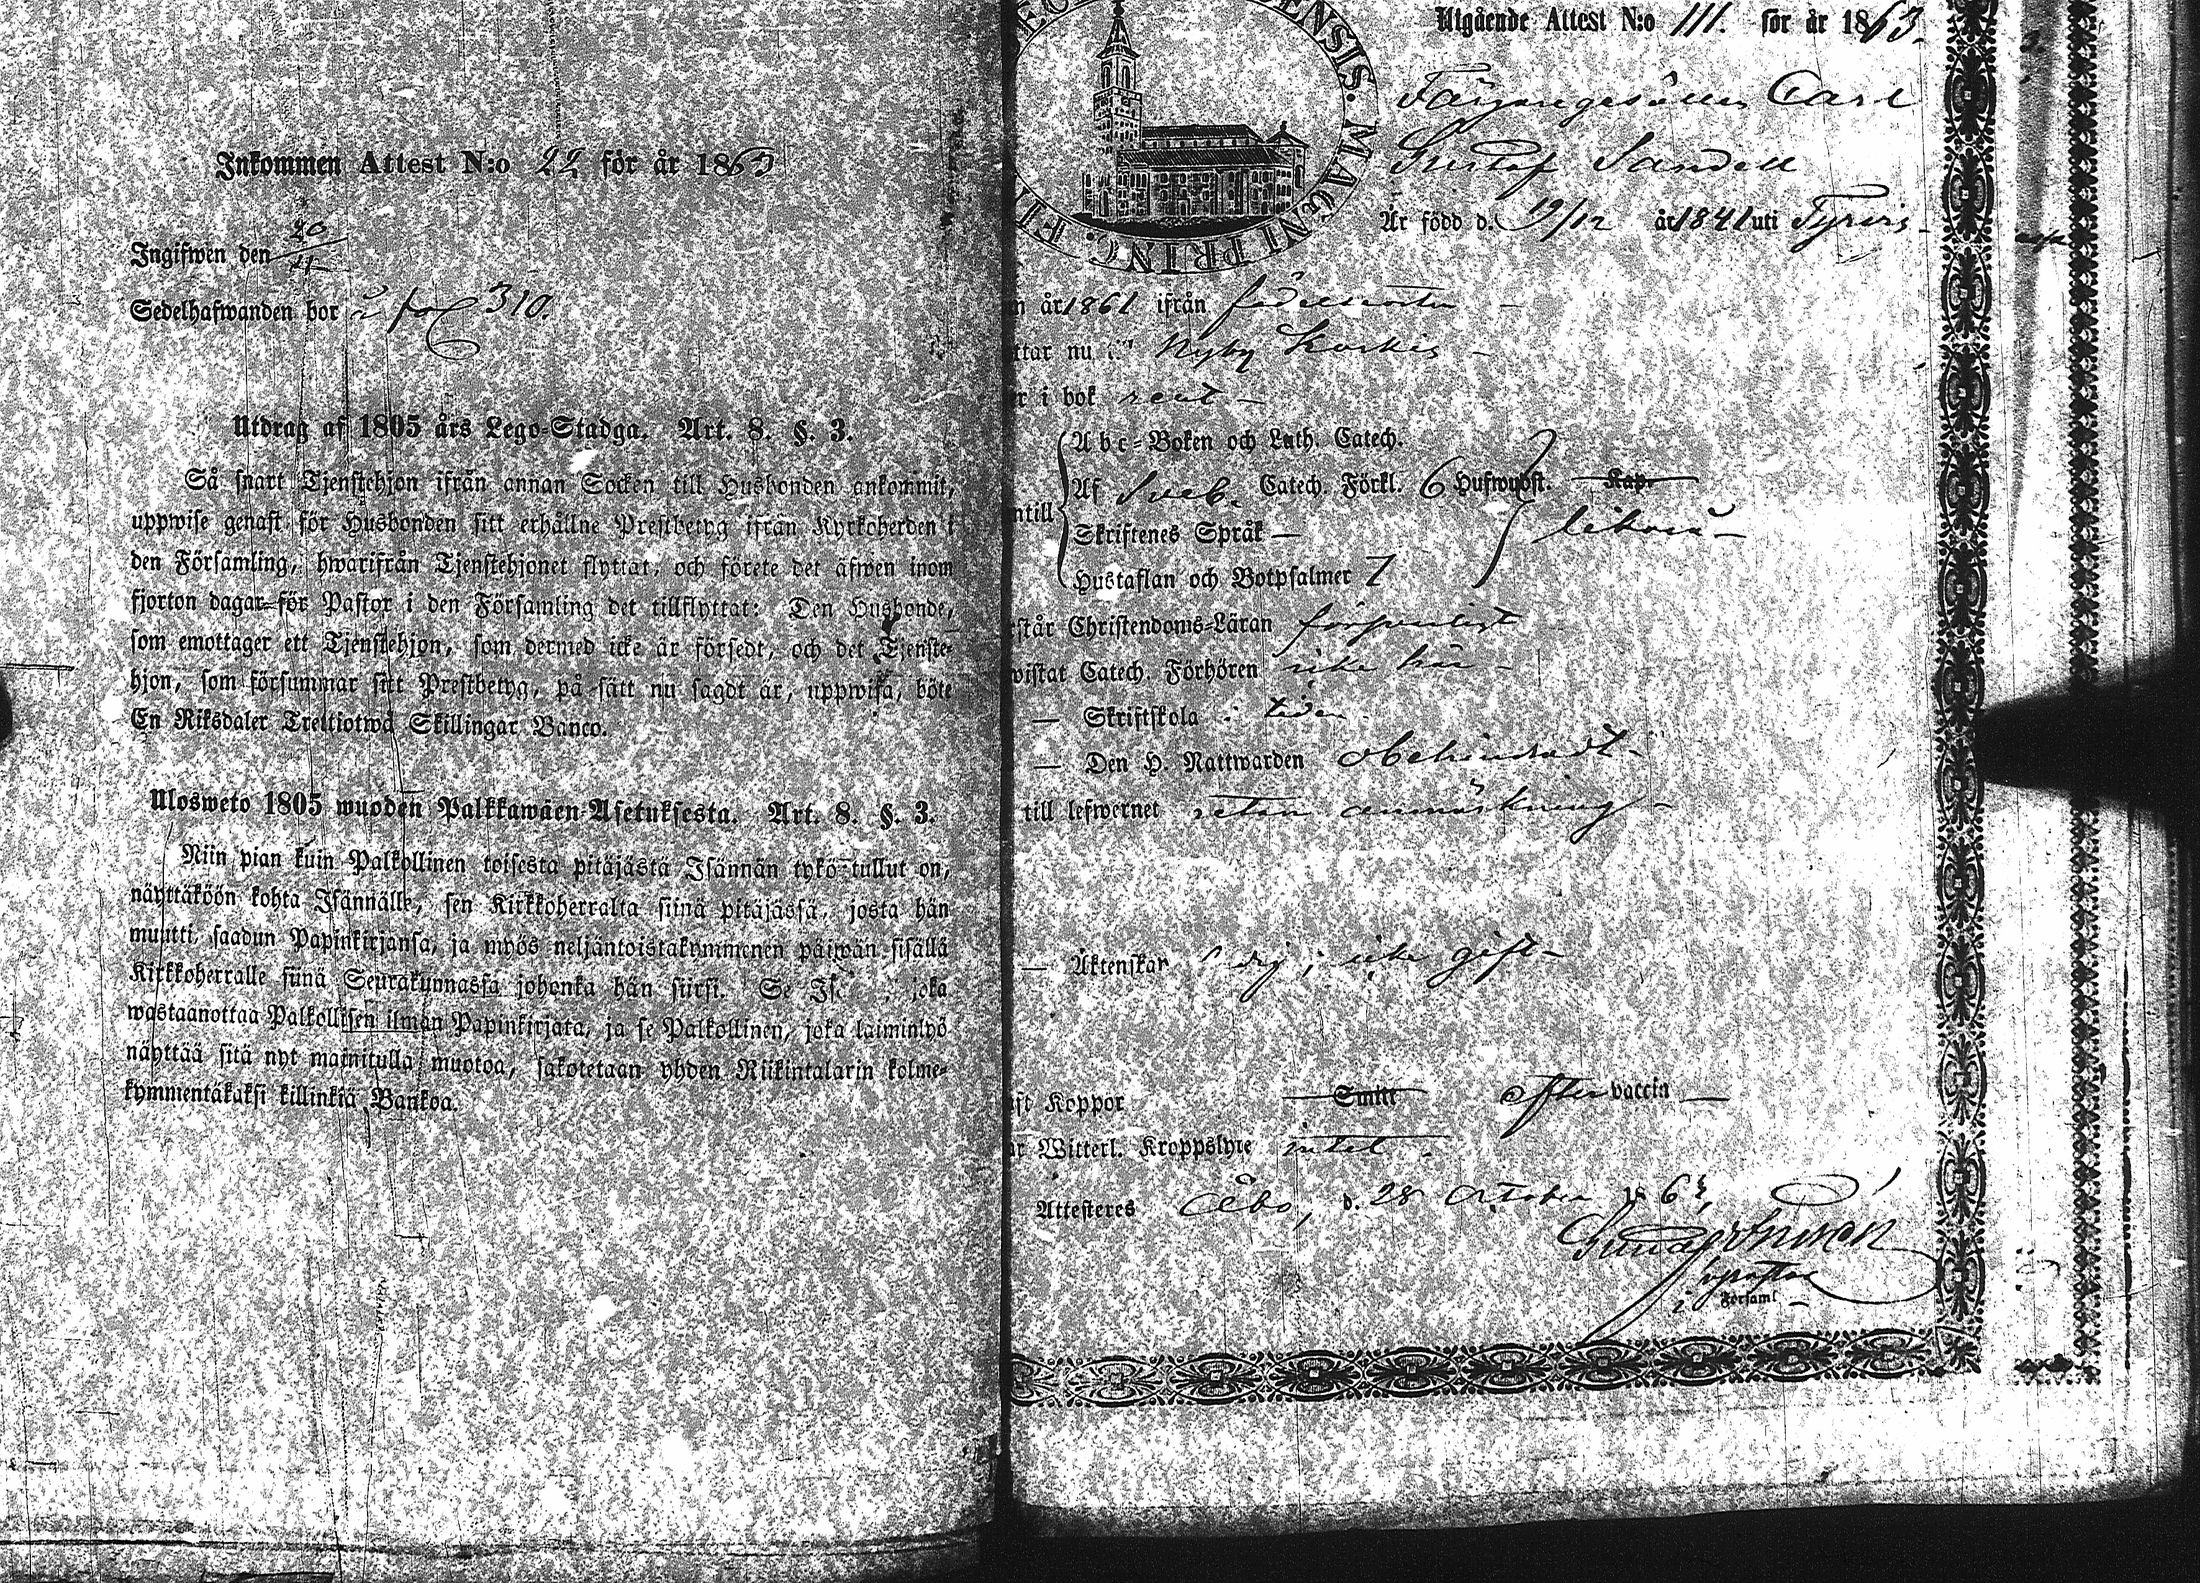 Inkommen Attest N:o 22 för år 1863
Ingifwen den 20/11
Sedelhafwanden bor å fol 310.
Utdrag af 1805 års Lego-Stadga. Art. 8. §. 3.
Så snart Tjenstehjon ifrån annan Socken till Husbonden ankommit,
uppwise genast för Husbonden sitt erhållne Prestbetyg ifrån Kyrkoherden i
den Församling, hwarifrån Tjenstehjonet flyttat, och förete det äfwen inom
fjorton dagar för Pastor i den Församling det tillflyttat: Den Husbonde,
som emottager ett Tjenstehjon, som dermed icke är försedt, och det Tjenste-
hjon, som försummar sitt Prestbetyg, på sätt nu sagdt är, uppwisa, böte
En Riksdaler Trettiotwå Skillingar Banco.
Ulosweto 1805 wuoden Palkkawäen-Asetuksesta. Art. 8. §. 3.
Niin pian kuin Palkollinen toisesta pitäjästä Isännän tykö tullut on,
näyttäköön kohta Isännälle, sen Kirkkoherralta siinä pitäjässä, josta hän
muutti, saadun Papinkirjansa, ja myös neljäntoistakymmenen päiwän sisällä
Kirkkoherralle siinä Seurakunnassa johonka hän siirsi. Se joka
wastaanottaa Palkollisen ilman Papinkirjata, ja se Palkollinen, joka laiminlyö
näyttää sitä nyt mainitulla muotoa, sakotetaan yhden Riikintalarin kolme-
kymmentäkaksi killinkiä Bankoa.
ENSIS. MAGNI PRINC. FI
Utgående Attest N:o 111. för år 1863.
Färgaregesällen Carl
Gustaf Sandell
Är född d. 19/12 år 1841 uti Tyrvis
år 1861 ifrån födelseorten
ttar nu Nyby Karkis
r i bok rent
Abc-Boken och Luth. Catech.
Af Sveb. Catech. Förkl. 6 Hufwudst. Kap.
ntill
Skriftenes Språk
Hustaflan och Botpsalmer 7
står Christendoms-Läran försvarligt
wistat Catech. Förhören icke här
Skriftskola i tiden
Den H. Nattwarden obehindradt
till lefwernet utan anmärkning
Äktenskap ledig; icke gift
Koppor Smitt efter vaccin
Witterl. Kroppslyte intet
Attesteres Åbo, d. 28 October 1863,
i Församl